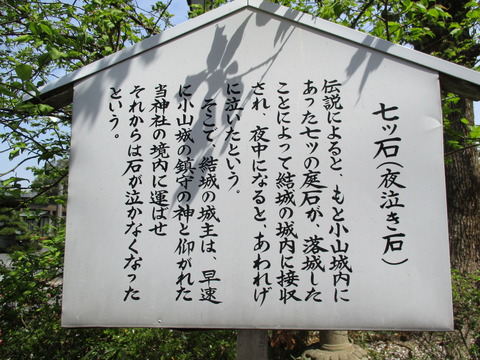 七ッ石(夜泣き石)
伝説によると、もと小山城内に
あった七ツの庭石が、落城した
ことによって結城の城内に接収
され、夜中になると、あわれげ
に泣いたという。
そこで、結城の城主は、早速
に小山城の鎮守の神と仰がれた
当神社の境内に運ばせ
それからは石が泣かなくなった
という。